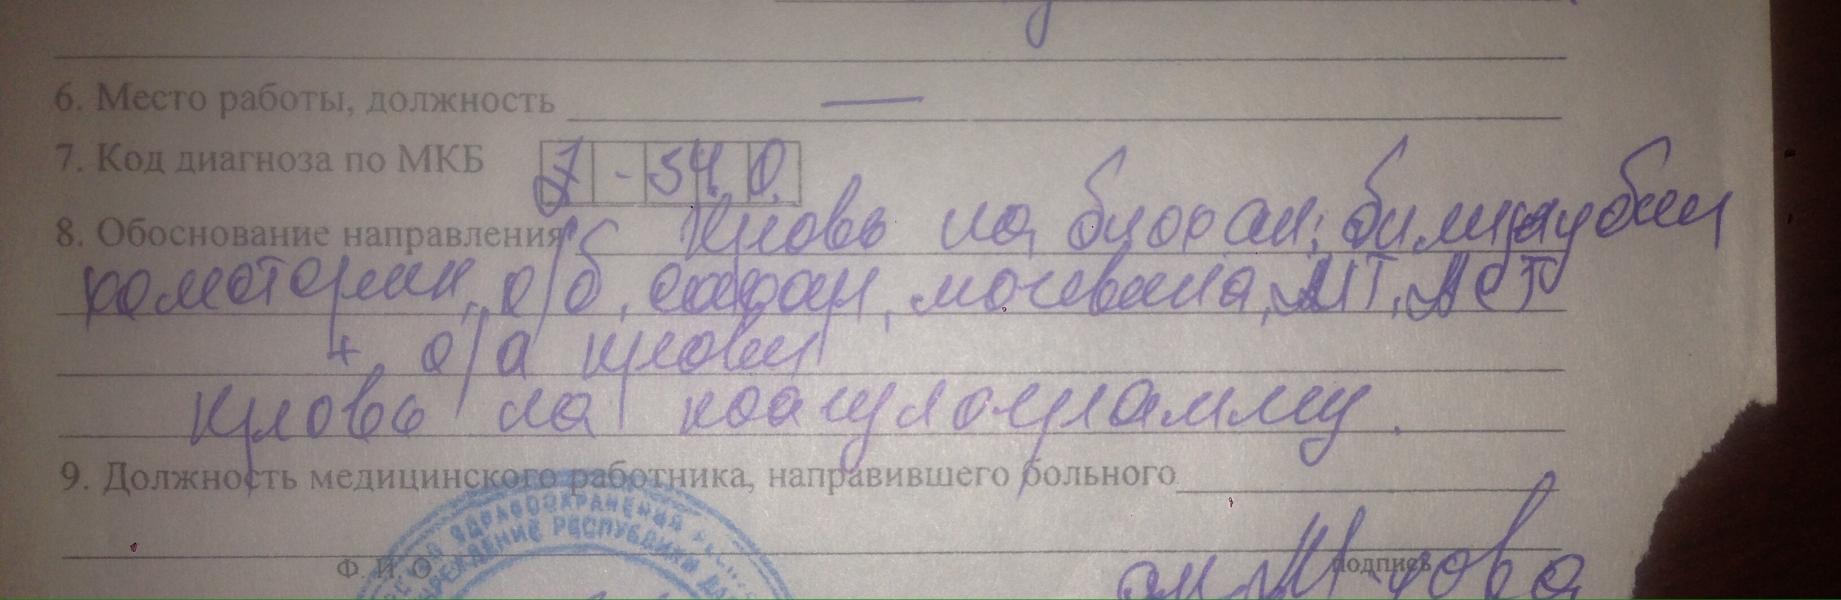 6. Место работы, должность —
7. Код диагноза по МКБ J - 34. 0.
8. Обоснование направления Кровь на биохан: билирубин
креатерин, о/б, сахар, мочевина, АЛТ, АСТ
+ о/а крови
Кровь на коагулограмму.
9. Должность медицинского работника, направившего больного
ЗДРАВООХРАНЕНИЯ
УЧРЕЖДЕНИЕ РЕСПУБЛИКИ ДА
Ф. И. О. подпись